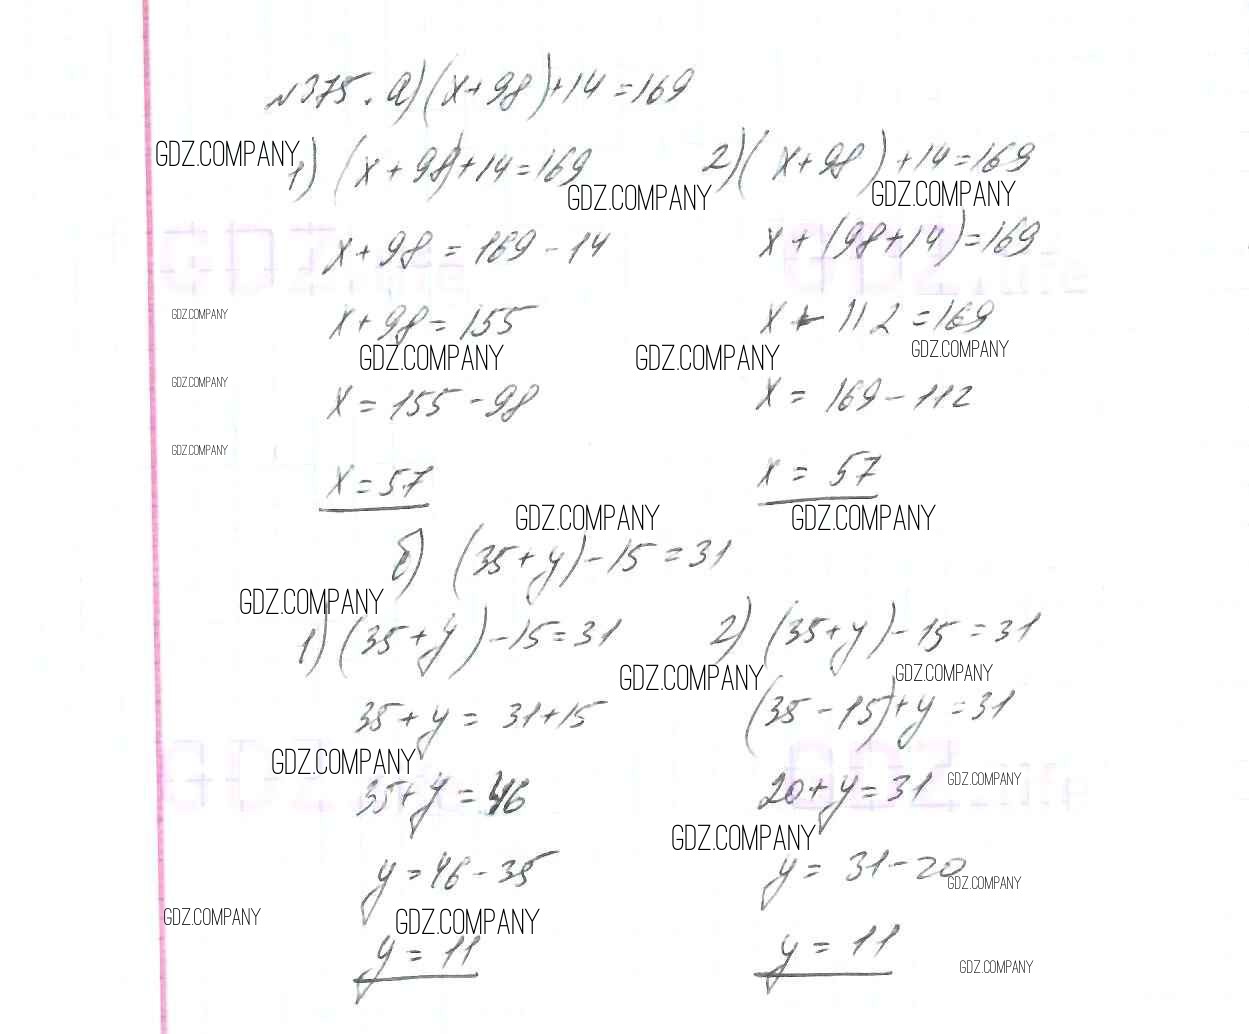 №375. а) (x+98)+14=169
GDZ.COMPANY
1) (x+98)+14=169
2) (x+98)+14=169
GDZ.COMPANY
GDZ.COMPANY
x+98=169-14
x+(98+14)=169
GDZ.COMPANY
x+98=155
x+112=169
GDZ.COMPANY
GDZ.COMPANY
GDZ.COMPANY
GDZ.COMPANY
x=155-98
x=169-112
GDZ.COMPANY
x=57
x=57
GDZ.COMPANY
GDZ.COMPANY
б) (35+y)-15=31
GDZ.COMPANY
1) (35+y)-15=31
2) (35+y)-15=31
GDZ.COMPANY
GDZ.COMPANY
35+y=31+15
(35-15)+y=31
GDZ.COMPANY
35+y=46
20+y=31
GDZ.COMPANY
GDZ.COMPANY
y=46-35
y=31-20
GDZ.COMPANY
GDZ.COMPANY
GDZ.COMPANY
y=11
y=11
GDZ.COMPANY